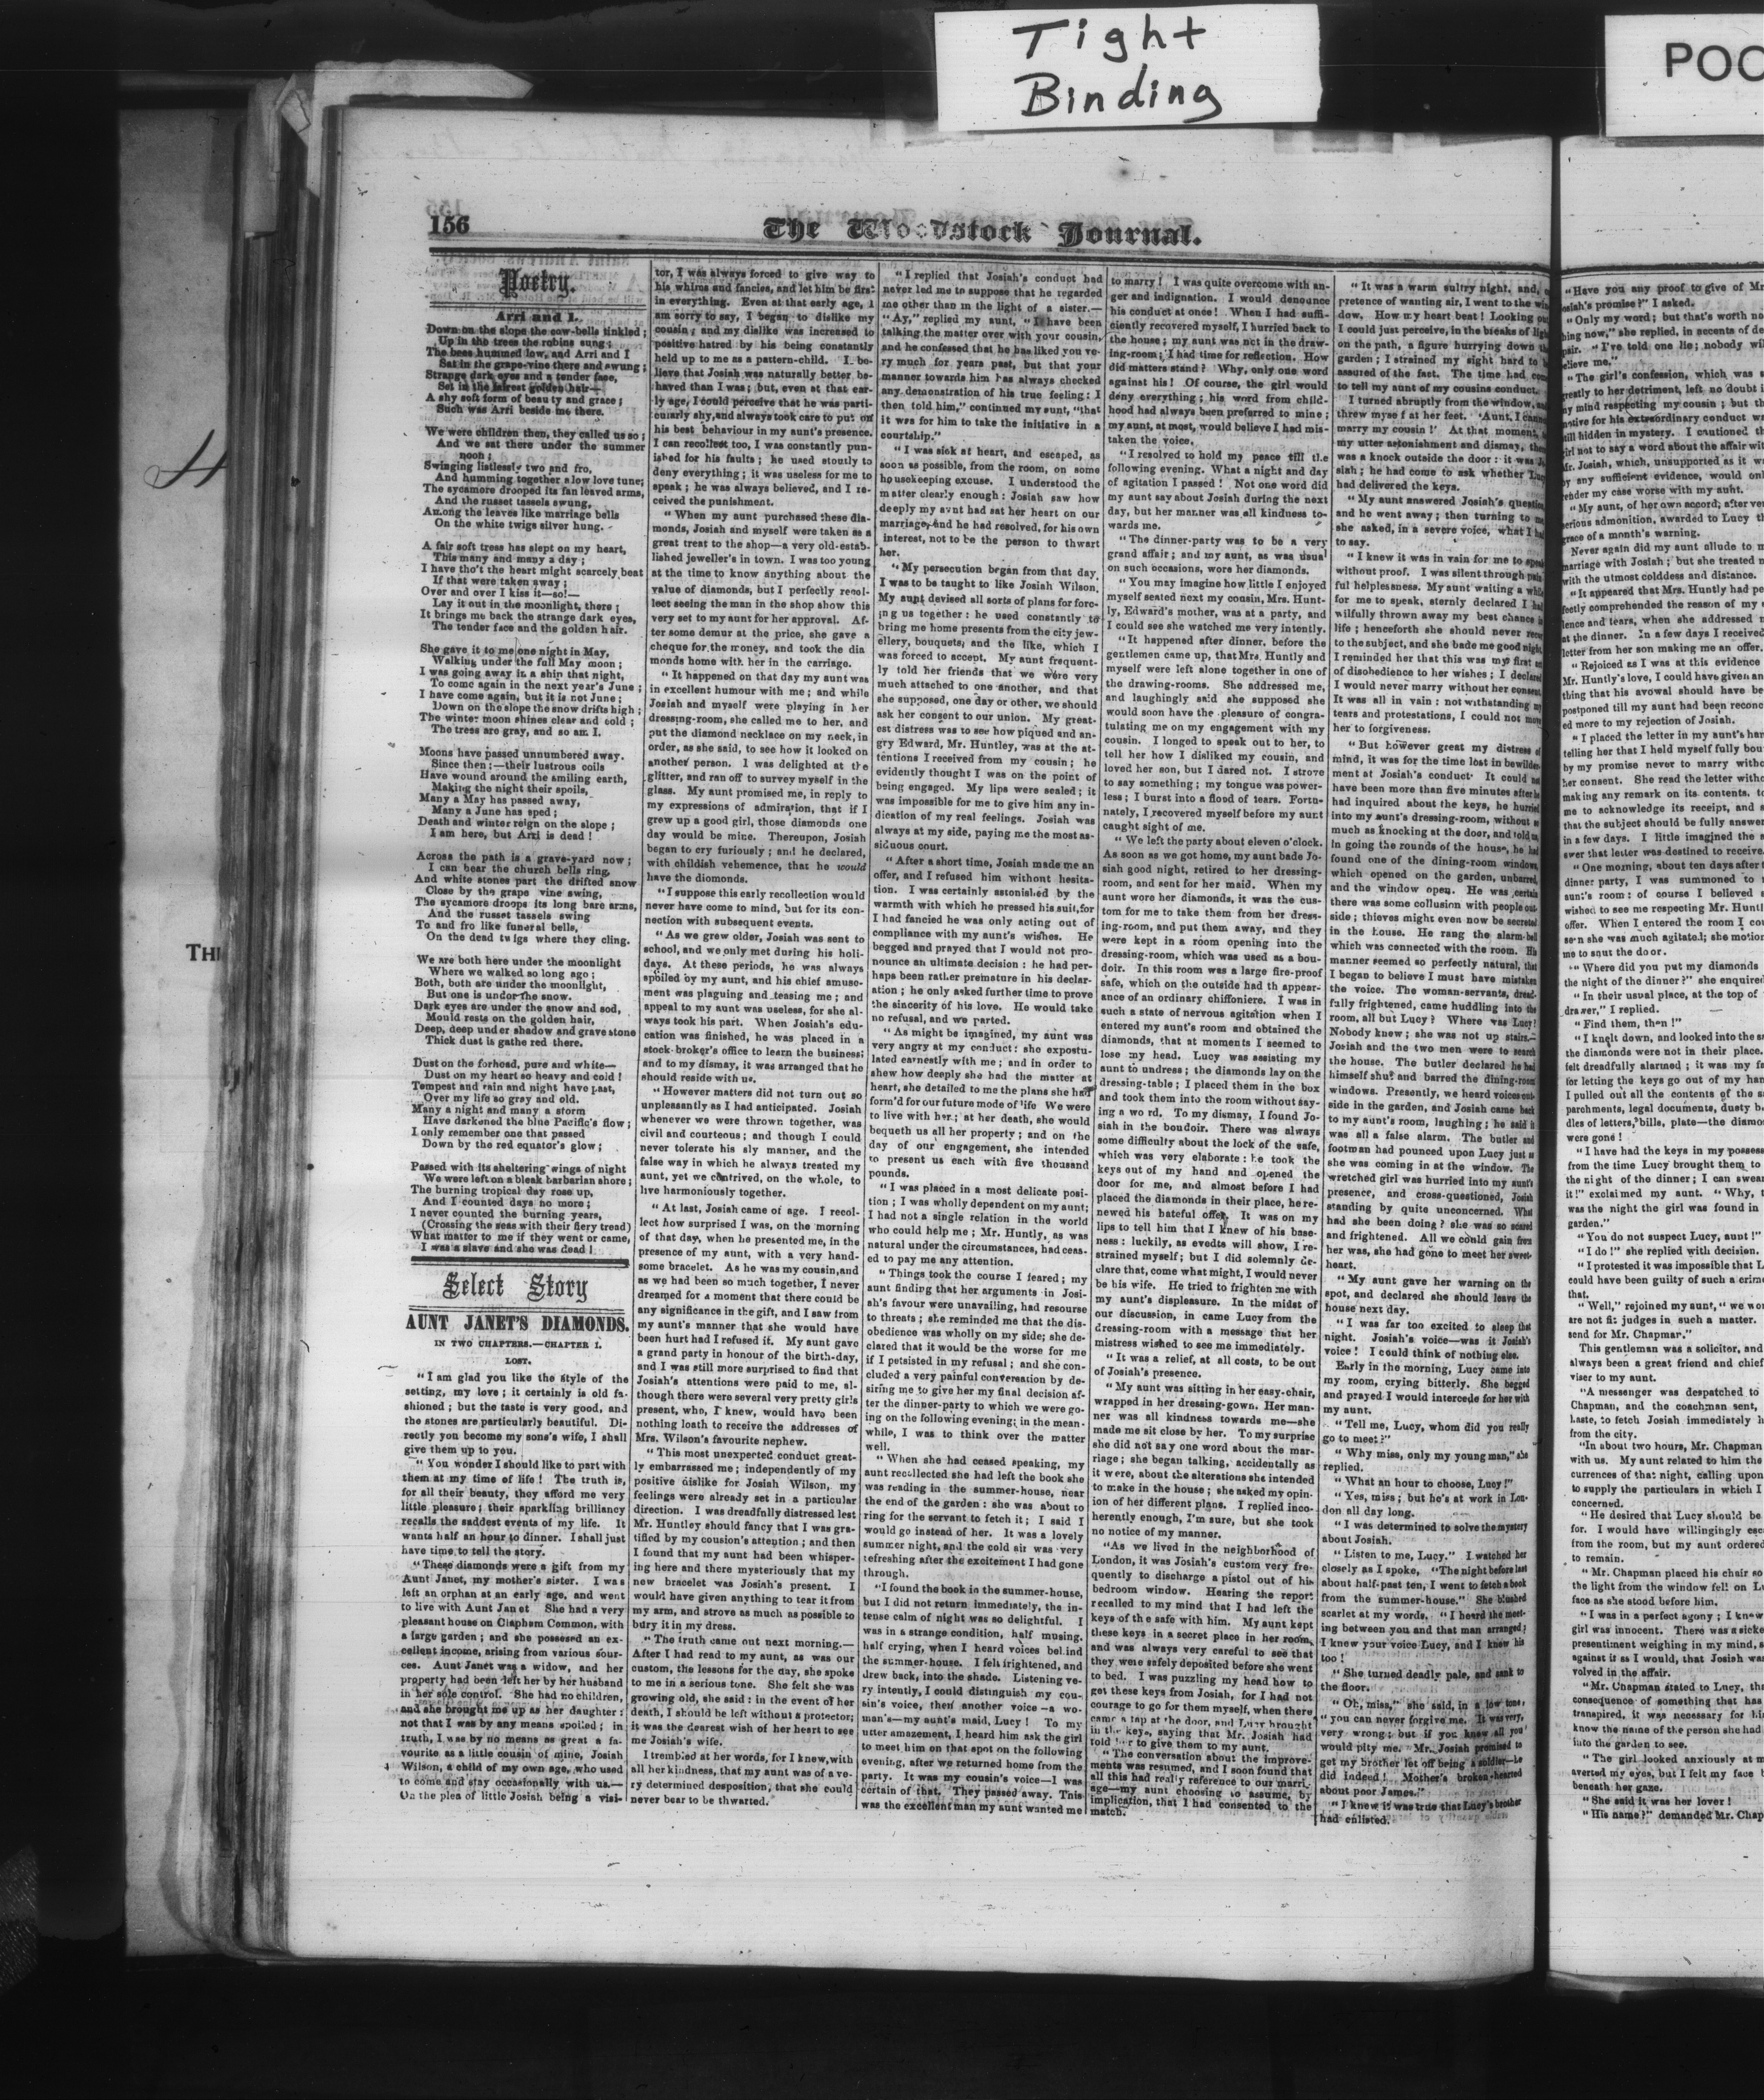 Tight
Binding
POO
156
The Woodstock Journal.
Poetry.
Arri and I.
Down on the slope the cow-bells tinkled;
Up in the trees the robins sung;
The bees hummed low, and Arri and I
Sat in the grape-vine there and swung;
Strange dark eyes and a tender face,
Set in the fairest golden hair—
A shy soft form of beauty and grace;
Such was Arri beside me there.
We were children then, they called us so;
And we sat there under the summer
noon;
Swinging listlessly two and fro,
And humming together a low love tune;
The sycamore drooped its fan leaved arms,
And the russet tassels swung,
Among the leaves like marriage bells
On the white twigs silver hung.
A fair soft tress has slept on my heart,
This many and many a day;
I have tho't the heart might scarcely beat
If that were taken away;
Over and over I kiss it—so!—
Lay it out in the moonlight, there;
It brings me back the strange dark eyes,
The tender face and the golden hair.
She gave it to me one night in May,
Walking under the full May moon;
I was going away in a ship that night,
To come again in the next year's June;
I have come again, but it is not June;
Down on the slope the snow drifts high;
The winter moon shines clear and cold;
The trees are gray, and so am I.
Moons have passed unnumbered away.
Since then;—their lustrous coils
Have wound around the smiling earth,
Making the night their spoils,
Many a May has passed away,
Many a June has sped;
Death and winter reign on the slope;
I am here, but Arri is dead!
Across the path is a grave-yard now;
I can hear the church bells ring,
And white stones part the drifted snow
Close by the grape vine swing,
The sycamore droops its long bare arms,
And the russet tassels swing
To and fro like funeral bells,
On the dead twigs where they cling.
We are both here under the moonlight
Where we walked so long ago;
Both, both are under the moonlight,
But one is under the snow.
Dark eyes are under the snow and sod,
Mould rests on the golden hair,
Deep, deep under shadow and grave stone
Thick dust is gathe red there.
Dust on the forhead, pure and white—
Dust on my heart so heavy and cold!
Tempest and rain and night have past,
Over my life so gray and old.
Many a night and many a storm
Have darkened the blue Pacific's flow;
I only remember one that passed
Down by the red equator's glow;
Passed with its sheltering wings of night
We were left on a bleak barbarian shore;
The burning tropical day rose up,
And I counted days no more;
I never counted the burning years,
(Crossing the seas with their fiery tread)
What matter to me if they went or came,
I was a slave and she was dead!
Select Story
AUNT JANET'S DIAMONDS.
IN TWO CHAPTERS.—CHAPTER I.
LOST.
"I am glad you like the style of the
setting, my love; it certainly is old fa-
shioned; but the taste is very good, and
the stones are particularly beautiful. Di-
rectly you become my sons's wife, I shall
give them up to you.
"You wonder I should like to part with
them at my time of life! The truth is,
for all their beauty, they afford me very
little pleasure; their sparkling brilliancy
recalls the saddest events of my life. It
wants half an hour to dinner. I shall just
have time to tell the story.
"These diamonds were a gift from my
Aunt Janet, my mother's sister. I was
left an orphan at an early age, and went
to live with Aunt Janet She had a very
pleasant house on Clapham Common, with
a large garden; and she possesed an ex-
cellent income, arising from various sour-
ces. Aunt Janet was a widow, and her
property had been left her by her husband
in her sole control. She had no children,
and she brought me up as her daughter:
not that I was by any means spoiled; in
truth, I was by no means as great a fa-
vourite as a little cousin of mine, Josiah
Wilson, a child of my own age, who used
to come and stay occasionally with us.—
On the plea of little Josiah being a visi-
tor, I was always forced to give way to
his whims and fancies, and let him be first
in everything. Even at that early age, I
am sorry to say, I began to dislike my
cousin; and my dislike was increased to
positive hatred by his being constantly
held up to me as a pattern-child. I be-
lieve that Josiah was naturally better be-
haved than I was; but, even at that ear-
ly age, I could perceive that he was parti-
cularly shy, and always took care to put on
his best behaviour in my aunt's presence.
I can recollect too, I was constantly pun-
ished for his faults; he used stoutly to
deny everything; it was useless for me to
speak; he was always believed, and I re-
ceived the punishment.
"When my aunt purchased these dia-
monds, Josiah and myself were taken as a
great treat to the shop—a very old-estab-
lished jeweller's in town. I was too young
at the time to know anything about the
value of diamonds, but I perfectly recol-
lect seeing the man in the shop show this
very set to my aunt for her approval. Af-
ter some demur at the price, she gave a
cheque for the money, and took the dia
monds home with her in the carriage.
"It happened on that day my aunt was
in excellent humour with me; and while
Josiah and myself were playing in her
dressing-room, she called me to her, and
put the diamond necklace on my neck, in
order, as she said, to see how it looked on
another person. I was delighted at the
glitter, and ran off to survey myself in the
glass. My aunt promised me, in reply to
my expressions of admiration, that if I
grew up a good girl, those diamonds one
day would be mine. Thereupon, Josiah
began to cry furiously; and he declared,
with childish vehemence, that he would
have the diomonds.
"I suppose this early recollection would
never have come to mind, but for its con-
nection with subsequent events.
"As we grew older, Josiah was sent to
school, and we only met during his holi-
days. At these periods, he was always
spoiled by my aunt, and his chief amuse-
ment was plaguing and teasing me; and
appeal to my aunt was useless, for she al-
ways took his part. When Josiah's edu-
cation was finished, he was placed in a
stock-broker's office to learn the business;
and to my dismay, it was arranged that he
should reside with us.
"However matters did not turn out so
unpleasantly as I had anticipated. Josiah
whenever we were thrown together, was
civil and courteous; and though I could
never tolerate his sly manner, and the
false way in which he always treated my
aunt, yet we contrived, on the whole, to
live harmoniously together.
"At last, Josiah came of age. I recol-
lect how surprised I was, on the morning
of that day, when he presented me, in the
presence of my aunt, with a very hand-
some bracelet. As he was my cousin, and
as we had been so much together, I never
dreamed for a moment that there could be
any significance in the gift, and I saw from
my aunt's manner that she would have
been hurt had I refused it. My aunt gave
a grand party in honour of the birth-day,
and I was still more surprised to find that
Josiah's attentions were paid to me, al-
though there were several very pretty girls
present, who, I knew, would have been
nothing loath to receive the addresses of
Mrs. Wilson's favourite nephew.
"This most unexpected conduct great-
ly embarrassed me; independently of my
positive dislike for Josiah Wilson, my
feelings were already set in a particular
direction. I was dreadfully distressed lest
Mr. Huntley should fancy that I was gra-
tified by my cousion's attention; and then
I found that my aunt had been whisper-
ing here and there mysteriously that my
new bracelet was Josiah's present. I
would have given anything to tear it from
my arm, and strove as much as possible to
bury it in my dress.
"The truth came out next morning.—
After I had read to my aunt, as was our
custom, the lessons for the day, she spoke
to me in a serious tone. She felt she was
growing old, she said: in the event of her
death, I should be left without a protector;
it was the dearest wish of her heart to see
me Josiah's wife.
I trembled at her words, for I knew, with
all her kindness, that my aunt was of a ve-
ry determined desposition, that she could
never bear to be thwarted.
"I replied that Josiah's conduct had
never led me to suppose that he regarded
me other than in the light of a sister.—
"Ay," replied my aunt, "I have been
talking the matter over with your cousin,
and he confessed that he has liked you ve-
ry much for years past, but that your
manner towards him has always checked
any demonstration of his true feeling: I
then told him," continued my aunt, "that
it was for him to take the initiative in a
courtship."
"I was sick at heart, and escaped, as
soon as possible, from the room, on some
housekeeping excuse. I understood the
matter clearly enough: Josiah saw how
deeply my avnt had sat her heart on our
marriage, and he had resolved, for his own
interest, not to be the person to thwart
her.
"My persecution began from that day.
I was to be taught to like Josiah Wilson.
My aunt devised all sorts of plans for forc-
ing us together: he used constantly to
bring me home presents from the city jew-
ellery, bouquets, and the like, which I
was forced to accept. My aunt frequent-
ly told her friends that we were very
much attached to one another, and that
she supposed, one day or other, we should
ask her consent to our union. My great-
est distress was to see how piqued and an-
gry Edward, Mr. Huntley, was at the at-
tentions I received from my cousin; he
evidently thought I was on the point of
being engaged. My lips were sealed; it
was impossible for me to give him any in-
dication of my real feelings. Josiah was
always at my side, paying me the most as-
siduous court.
"After a short time, Josiah made me an
offer, and I refused him without hesita-
tion. I was certainly astonished by the
warmth with which he pressed his suit, for
I had fancied he was only acting out of
compliance with my aunt's wishes. He
begged and prayed that I would not pro-
nounce an ultimate decision: he had per-
haps been rather premature in his declar-
ation; he only asked further time to prove
the sincerity of his love. He would take
no refusal, and we parted.
"As might be imagined, my aunt was
very angry at my conduct: she expostu-
lated earnestly with me; and in order to
shew how deeply she had the matter at
heart, she detailed to me the plans she had
form'd for our future mode of life We were
to live with her; at her death, she would
bequeth us all her property; and on the
day of our engagement, she intended
to present us each with five thousand
pounds.
"I was placed in a most delicate posi-
tion; I was wholly dependent on my aunt;
I had not a single relation in the world
who could help me; Mr. Huntly, as was
natural under the circumstances, had ceas-
ed to pay me any attention.
"Things took the course I feared; my
aunt finding that her arguments in Josi-
ah's favour were unavailing, had resourse
to threats; she reminded me that the dis-
obedience was wholly on my side; she de-
clared that it would be the worse for me
if I petsisted in my refusal; and she con-
cluded a very painful conversation by de-
siring me to give her my final decision af-
ter the dinner-party to which we were go-
ing on the following evening; in the mean-
while, I was to think over the matter
well.
"When she had ceased speaking, my
aunt recollected she had left the book she
was reading in the summer-house, near
the end of the garden: she was about to
ring for the servant to fetch it; I said I
would go instead of her. It was a lovely
summer night, and the cold air was very
refreshing after the excitement I had gone
through.
"I found the book in the summer-house,
but I did not return immediately, the in-
tense calm of night was so delightful. I
was in a strange condition, half musing,
half crying, when I heard voices behind
the summer-house. I felt frightened, and
drew back, into the shade. Listening ve-
ry intently, I could distinguish my cou-
sin's voice, then another voice—a wo-
man's—my aunt's maid, Lucy! To my
utter amazement, I heard him ask the girl
to meet him on that spot on the following
evening, after we returned home from the
party. It was my cousin's voice—I was
certain of that. They passed away. This
was the excellent man my aunt wanted me
to marry! I was quite overcome with an-
ger and indignation. I would denounce
his conduct at once! When I had suffi-
ciently recovered myself, I hurried back to
the house; my aunt was not in the draw-
ing-room; I had time for reflection. How
did matters stand? Why, only one word
against his! Of course, the girl would
deny everything; his word from child-
hood had always been preferred to mine;
my aunt, at most, would believe I had mis-
taken the voice.
"I resolved to hold my peace till the
following evening. What a night and day
of agitation I passed! Not one word did
my aunt say about Josiah during the next
day, but her manner was all kindness to-
wards me.
"The dinner-party was to be a very
grand affair; and my aunt, as was usual
on such occasions, wore her diamonds.
"You may imagine how little I enjoyed
myself seated next my cousin, Mrs. Hunt-
ly, Edward's mother, was at a party, and
I could see she watched me very intently.
"It happened after dinner, before the
gentlemen came up, that Mrs. Huntly and
myself were left alone together in one of
the drawing-rooms. She addressed me,
and laughingly said she supposed she
would soon have the pleasure of congra-
tulating me on my engagement with my
cousin. I longed to speak out to her, to
tell her how I disliked my cousin, and
loved her son, but I dared not. I strove
to say something; my tongue was power-
less; I burst into a flood of tears. Fortu-
nately, I recovered myself before my aunt
caught sight of me.
"We left the party about eleven o'clock.
As soon as we got home, my aunt bade Jo-
siah good night, retired to her dressing-
room, and sent for her maid. When my
aunt wore her diamonds, it was the cus-
tom for me to take them from her dress-
ing-room, and put them away, and they
were kept in a room opening into the
dressing-room, which was used as a bou-
doir. In this room was a large fire-proof
safe, which on the outside had th appear-
ance of an ordinary chiffoniere. I was in
such a state of nervous agitation when I
entered my aunt's room and obtained the
diamonds, that at moments I seemed to
lose my head. Lucy was assisting my
aunt to undress; the diamonds lay on the
dressing-table; I placed them in the box
and took them into the room without say-
ing a wo rd. To my dismay, I found Jo-
siah in the boudoir. There was always
some difficulty about the lock of the safe,
which was very elaborate: he took the
keys out of my hand and opened the
door for me, and almost before I had
placed the diamonds in their place, he re-
newed his hateful offer. It was on my
lips to tell him that I knew of his base-
ness: luckily, as evedts will show, I re-
strained myself; but I did solemnly de-
clare that, come what might, I would never
be his wife. He tried to frighten me with
my aunt's displeasure. In the midst of
our discussion, in came Lucy from the
dressing-room with a message that her
mistress wished to see me immediately.
"It was a relief, at all costs, to be out
of Josiah's presence.
"My aunt was sitting in her easy-chair,
wrapped in her dressing-gown. Her man-
ner was all kindness towards me—she
made me sit close by her. To my surprise
she did not say one word about the mar-
riage; she began talking, accidentally as
it were, about the alterations she intended
to make in the house; she asked my opin-
ion of her different plans. I replied inco-
herently enough, I'm sure, but she took
no notice of my manner.
"As we lived in the neighborhood of
London, it was Josiah's custom very fre-
quently to discharge a pistol out of his
bedroom window. Hearing the report
recalled to my mind that I had left the
keys of the safe with him. My aunt kept
these keys in a secret place in her room,
and was always very careful to see that
they were safely deposited before she went
to bed. I was puzzling my head how to
get these keys from Josiah, for I had not
courage to go for them myself, when there
came a tap at the door, and Lucy brought
in the keys, saying that Mr. Josiah had
told her to give them to my aunt.
"The conversation about the improve-
ments was resumed, and I soon found that
all this had really reference to our marri-
age—my aunt choosing to assume, by
implication, that I had consented to the
match.
"It was a warm sultry night, and,
pretence of wanting air, I went to the win
dow. How my heart beat! Looking out
I could just perceive, in the breaks of ligh
on the path, a figure hurrying down
garden; I strained my sight hard to
assured of the fact. The time had com
to tell my aunt of my cousins conduct.
I turned abruptly from the window, an
threw myse f at her feet. 'Aunt, I cann
marry my cousin!' At that moment,
my utter astonishment and dismay, the
was a knock outside the door: it was Jo
siah; he had come to ask whether Lucy
had delivered the keys.
"My aunt answered Josiah's question
and he went away; then turning to me
she asked, in a severe voice, what I had
to say.
"I knew it was in vain for me to speak
without proof. I was silent through pain
ful helplessness. My aunt waiting a while
for me to speak, sternly declared I had
wilfully thrown away my best chance in
life; henceforth she should never recur
to the subject, and she bade me good night.
I reminded her that this was my first act
of disobedience to her wishes; I declared
I would never marry without her consent.
It was all in vain: not withstanding my
tears and protestations, I could not move
her to forgiveness.
"But however great my distress of
mind, it was for the time lost in bewilder-
ment at Josiah's conduct. It could not
have been more than five minutes after he
had inquired about the keys, he hurried
into my aunt's dressing-room, without so
much as knocking at the door, and told us,
in going the rounds of the house, he had
found one of the dining-room windows,
which opened on the garden, unbarred,
and the window open. He was certain
there was some collusion with people out-
side; thieves might even now be secreted
in the house. He rang the alarm-bell
which was connected with the room. His
manner seemed so perfectly natural, that
I began to believe I must have mistaken
the voice. The woman-servants, dread-
fully frightened, came huddling into the
room, all but Lucy? Where was Lucy?
Nobody knew; she was not up stairs.—
Josiah and the two men were to search
the house. The butler declared he had
himself shut and barred the dining-room
windows. Presently, we heard voices out-
side in the garden, and Josiah came back
to my aunt's room, laughing; he said it
was all a false alarm. The butler and
footman had pounced upon Lucy just as
she was coming in at the window. The
wretched girl was hurried into my aunt's
presence, and cross-questioned, Josiah
standing by quite unconcerned. What
had she been doing? she was so scared
and frightened. All we could gain from
her was, she had gone to meet her sweet-
heart.
"My aunt gave her warning on the
spot, and declared she should leave the
house next day.
"I was far too excited to sleep that
night. Josiah's voice—was it Josiah's
voice! I could think of nothing else.
Early in the morning, Lucy came into
my room, crying bitterly. She begged
and prayed I would intercede for her with
my aunt.
"Tell me, Lucy, whom did you really
go to meet?"
"Why miss, only my young man," she
replied.
"What an hour to choose, Lucy!"
"Yes, miss; but he's at work in Lon-
don all day long.
"I was determined to solve the mystery
about Josiah.
"Listen to me, Lucy." I watched her
closely as I spoke, "The night before last
about half-past ten, I went to fetch a book
from the summer-house." She blushed
scarlet at my words, "I heard the meet-
ing between you and that man arranged;
I knew your voice Lucy, and I knew his
too!
"She turned deadly pale, and sank to
the floor.
"Oh, miss," she said, in a low tone,
"you can never forgive me. It was very,
very wrong; but if you knew all you
would pity me. Mr. Josiah promised to
get my brother let off being a soldier—he
did indeed! Mother's broken-hearted
about poor James."
"I knew it was true that Lucy's brother
had enlisted.
"Have you any proof to give of Mr
osiah's promise?" I asked.
"Only my word; but that's worth no
hing now," she replied, in accents of de
pair. "I've told one lie; nobody wil
elieve me."
"The girl's confession, which was
reatly to her detriment, left no doubt i
y mind respecting my cousin; but th
otive for his extraordinary conduct w
till hidden in mystery. I cautioned th
girl not to say a word about the affair wit
Mr. Josiah, which, unsupported as it w
by any sufficient evidence, would onl
render my case worse with my aunt.
"My aunt, of her own accord, after ve
serious admonition, awarded to Lucy th
grace of a month's warning.
Never again did my aunt allude to m
marriage with Josiah; but she treated m
with the utmost colddess and distance.
"It appeared that Mrs. Huntly had pe
fectly comprehended the reason of my
lence and tears, when she addressed m
at the dinner. In a few days I received
letter from her son making me an offer.
"Rejoiced as I was at this evidence
Mr. Huntly's love, I could have given an
thing that his avowal should have be
postponed till my aunt had been reconc
ed more to my rejection of Josiah.
"I placed the letter in my aunt's han
telling her that I held myself fully bou
by my promise never to marry witho
her consent. She read the letter witho
making any remark on its contents. to
me to acknowledge its receipt, and
that the subject should be fully answer
in a few days. I little imagined the a
swer that letter was destined to receive.
"One morning, about ten days after
dinner party, I was summoned to
aunt's room: of course I believed
wished to see me respecting Mr. Huntl
offer. When I entered the room I cou
seen she was much agitated; she motion
me to shut the door.
"Where did you put my diamonds
the night of the dinner?" she enquired
"In their usual place, at the top of
drawer," I replied.
"Find them, then!"
"I knelt down, and looked into the sa
the diamonds were not in their place.
felt dreadfully alarmed; it was my fa
for letting the keys go out of my han
I pulled out all the contents of the sa
parchments, legal documents, dusty b
dles of letters, bills, plate—the diamo
were gone!
"I have had the keys in my possess
from the time Lucy brought them to
the night of the dinner; I can swear
it!" exclaimed my aunt. "Why, t
was the night the girl was found in
garden."
"You do not suspect Lucy, aunt!"
"I do!" she replied with decision.
"I protested it was impossible that L
could have been guilty of such a crime
that.
"Well," rejoined my aunt, "we wo
are not fit judges in such a matter.
send for Mr. Chapmar."
This gentleman was a solicitor, and
always been a great friend and chief
viser to my aunt.
"A messenger was despatched to
Chapman, and the coachman sent,
haste, to fetch Josiah immediately h
from the city.
"In about two hours, Mr. Chapman
with us. My aunt related to him the
currences of that night, calling upon
to supply the particulars in which I
concerned.
"He desired that Lucy should be
for. I would have willingly esc
from the room, but my aunt ordered
to remain.
"Mr. Chapman placed his chair so
the light from the window fell on Lu
face as she stood before him.
"I was in a perfect agony; I knew
girl was innocent. There was a sicke
presentiment weighing in my mind, s
against it as I would, that Josiah was
volved in the affair.
"Mr. Chapman stated to Lucy, tha
consequence of something that has
transpired, it was necessary for him
know the name of the person she had
into the garden to see.
"The girl looked anxiously at m
averted my eyes, but I felt my face b
beneath her gaze.
"She said it was her lover!
"His name?" demanded Mr. Chap